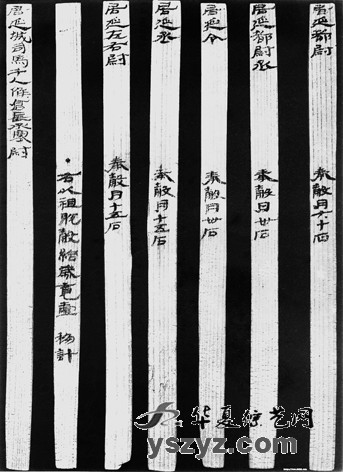 居延都尉　奉穀月六十石
居延都尉丞　奉穀月卅石
居延令　奉穀月卅石
居延丞　奉穀月十五石
居延左右尉　奉穀月十五石
●右以祖脫穀給歲竟壹移計
居延城司馬千人候倉長丞塞尉
华夏综艺网
yszyz.com